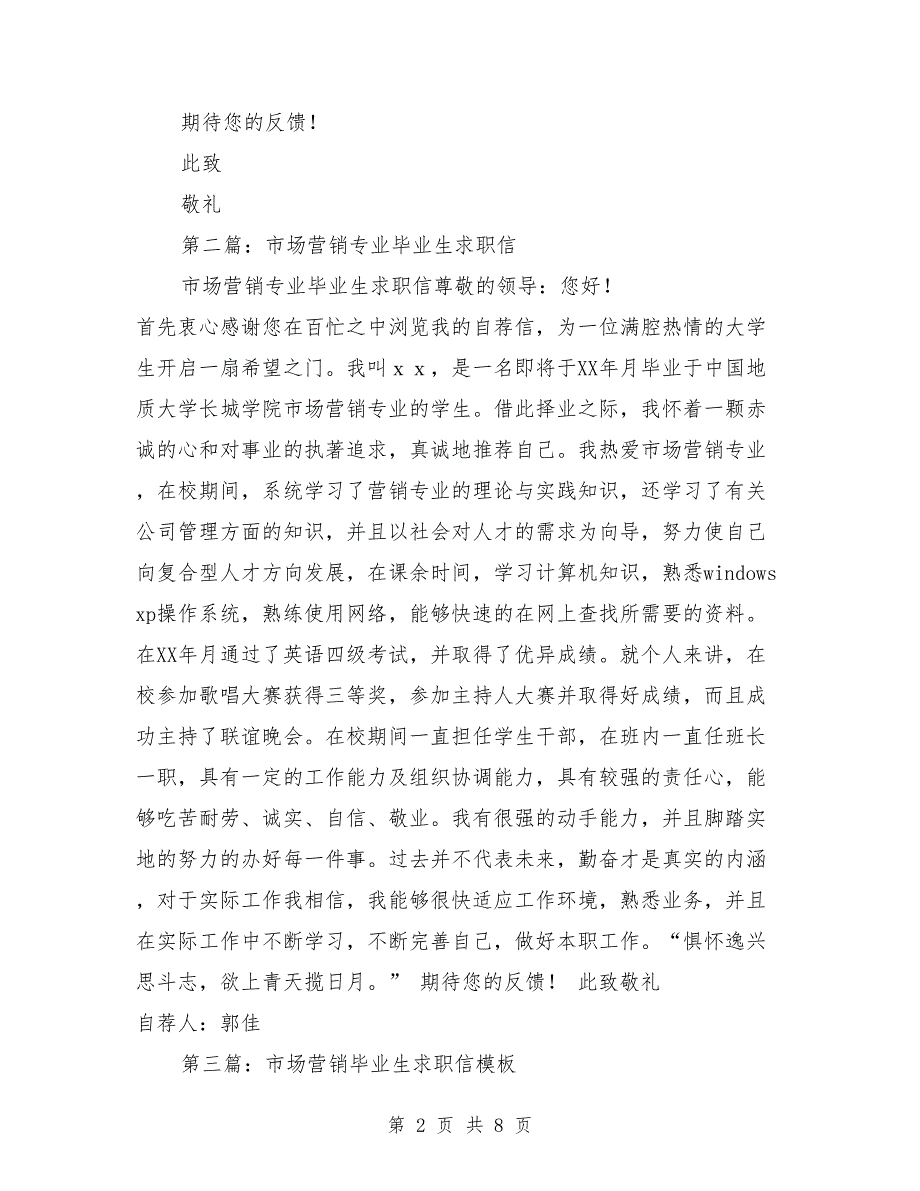 期待您的反馈！
此致
敬礼
第二篇：市场营销专业毕业生求职信
市场营销专业毕业生求职信尊敬的领导：您好！
首先衷心感谢您在百忙之中浏览我的自荐信，为一位满腔热情的大学
生开启一扇希望之门。我叫ｘｘ，是一名即将于XX年月毕业于中国地
质大学长城学院市场营销专业的学生。借此择业之际，我怀着一颗赤
诚的心和对事业的执著追求，真诚地推荐自己。我热爱市场营销专业
，在校期间，系统学习了营销专业的理论与实践知识，还学习了有关
公司管理方面的知识，并且以社会对人才的需求为向导，努力使自己
向复合型人才方向发展，在课余时间，学习计算机知识，熟悉windows
xp操作系统，熟练使用网络，能够快速的在网上查找所需要的资料。
在XX年月通过了英语四级考试，并取得了优异成绩。就个人来讲，在
校参加歌唱大赛获得三等奖，参加主持人大赛并取得好成绩，而且成
功主持了联谊晚会。在校期间一直担任学生干部，在班内一直任班长
一职，具有一定的工作能力及组织协调能力，具有较强的责任心，能
够吃苦耐劳、诚实、自信、敬业。我有很强的动手能力，并且脚踏实
地的努力的办好每一件事。过去并不代表未来，勤奋才是真实的内涵
，对于实际工作我相信，我能够很快适应工作环境，熟悉业务，并且
在实际工作中不断学习，不断完善自己，做好本职工作。“惧怀逸兴
思斗志，欲上青天揽日月。” 期待您的反馈！ 此致敬礼
自荐人：郭佳
第三篇：市场营销毕业生求职信模板
第 2 页 共 8 页